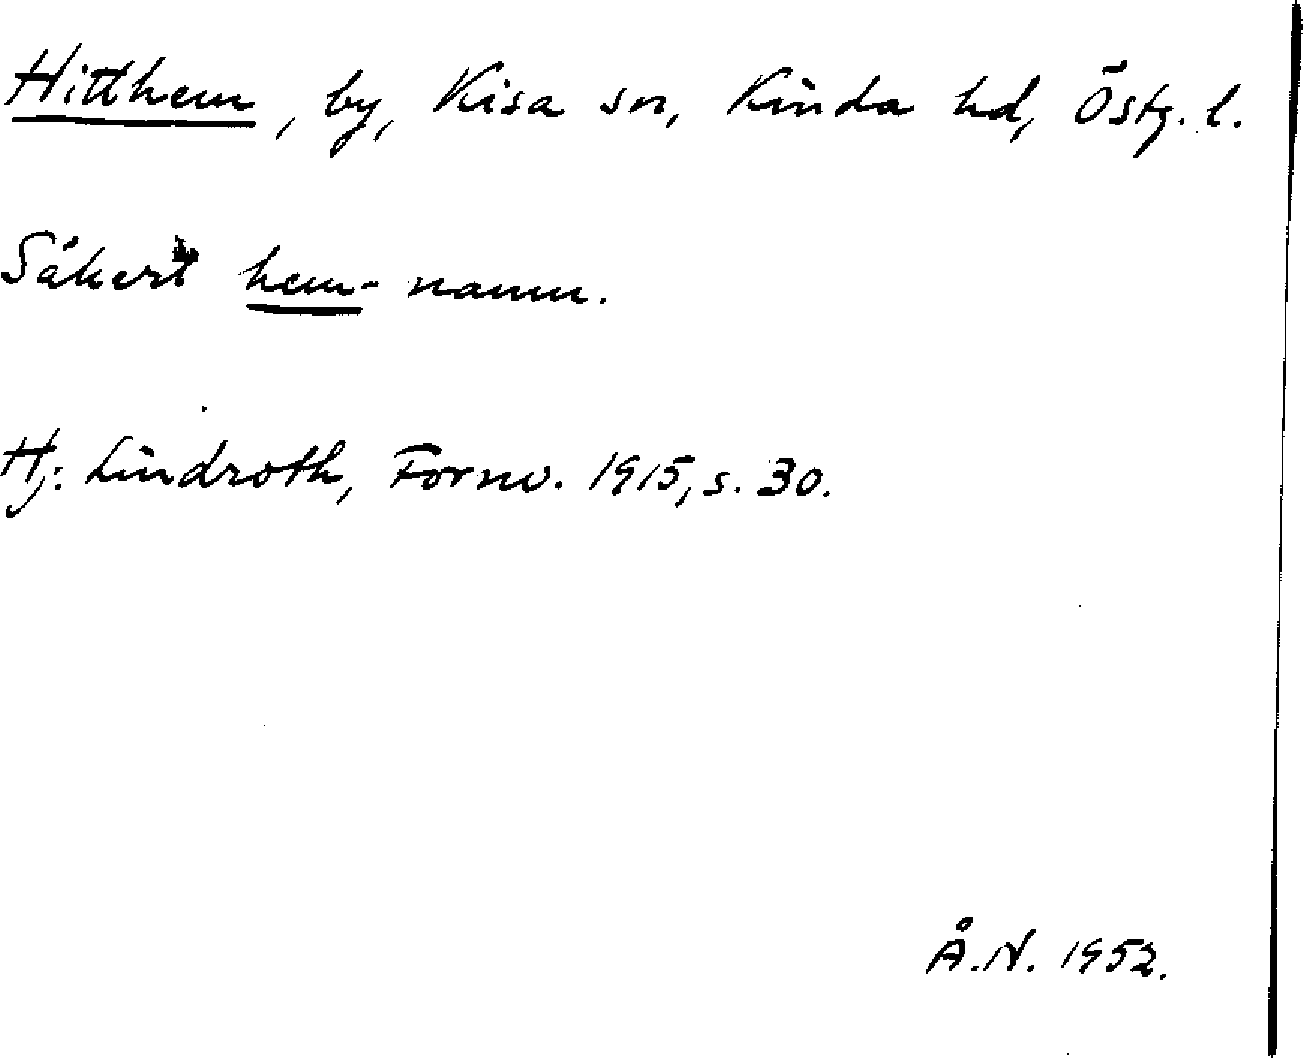 Hitthem, by, Kisa sn, Kinda hd, Östg. l.
Säkert hem-namn.
Hj. Lindroth, Fornv. 1915, s. 30.
Å.N. 1952.